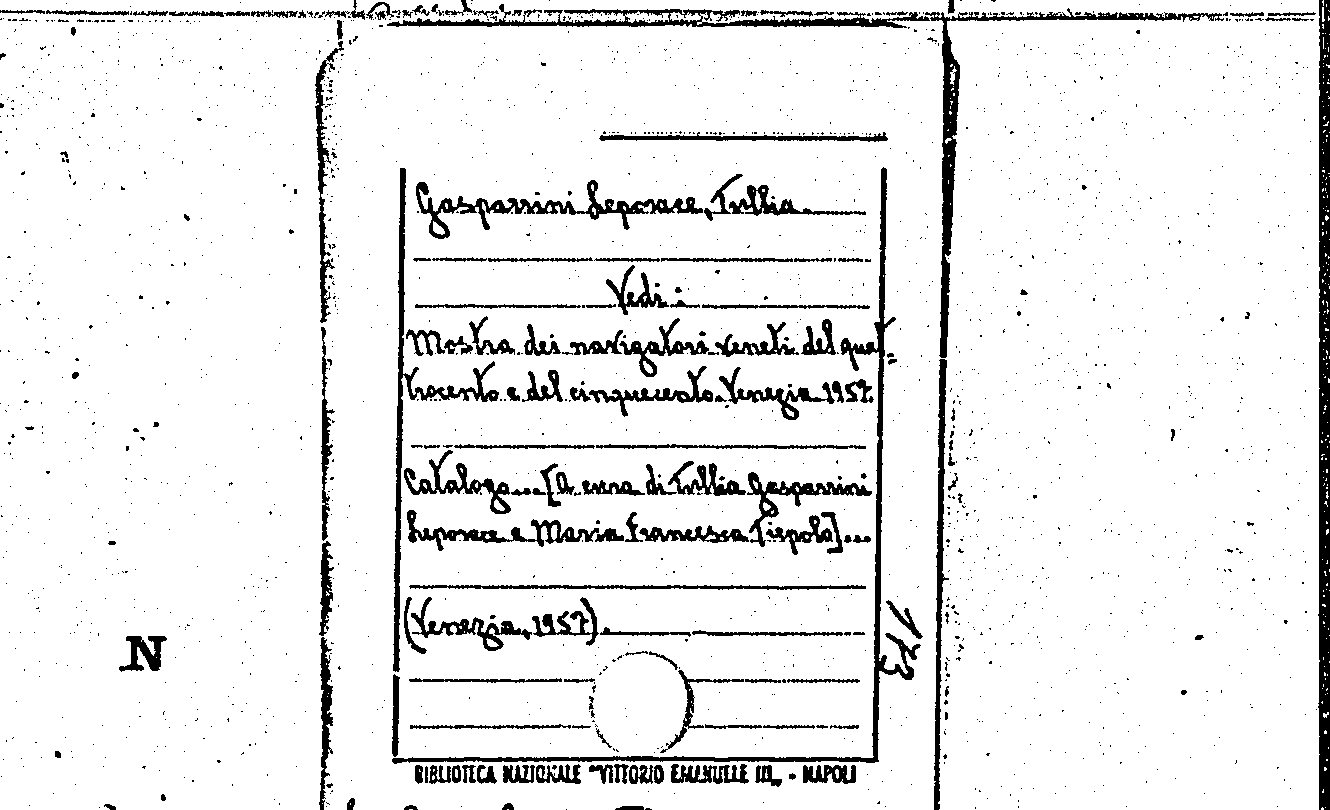 Gasparrini Leporace, Tullia.
Vedi:
Mostra dei navigatori veneti del quat=
trocento e del cinquecento. Venezia 1957.
Catalogo...[A cura di Tullia Gasparrini
Leporace e Maria Francesca Tiepolo]...
(Venezia, 1957).
N
BIBLIOTECA NAZIONALE "VITTORIO EMANUELE III„ - NAPOLI